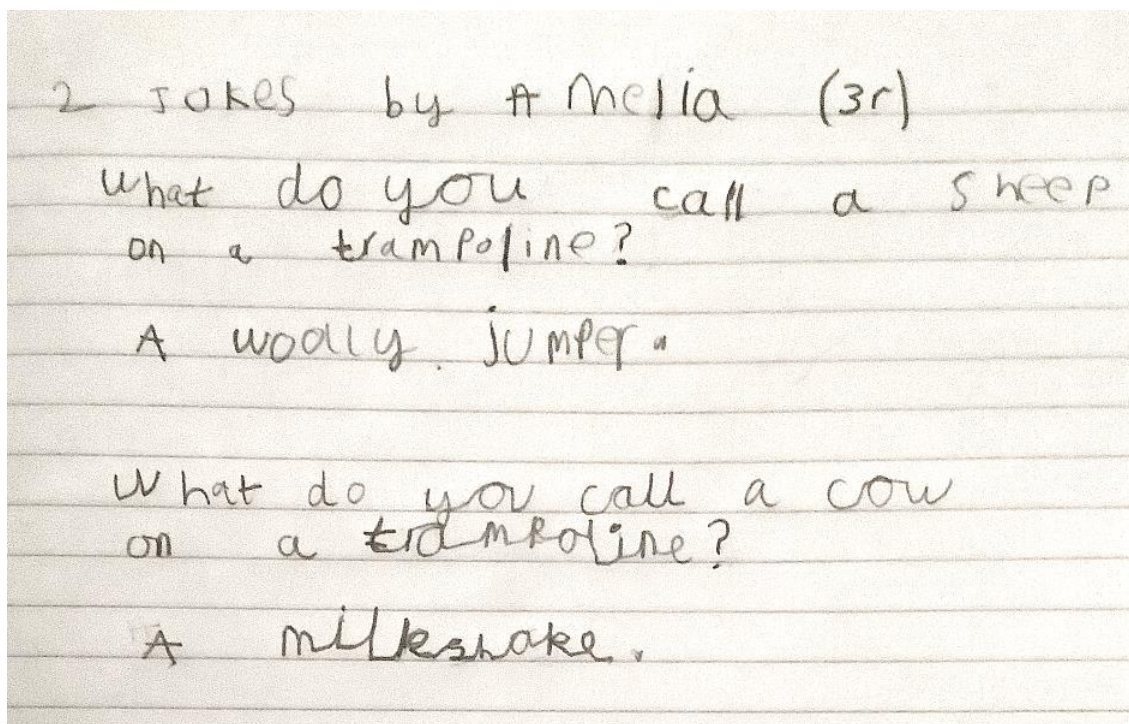 2 Jokes by Amelia (3r)
What do you call a sheep
on a trampoline?
A woolly jumper.
What do you call a cow
on a trampoline?
A milkshake.